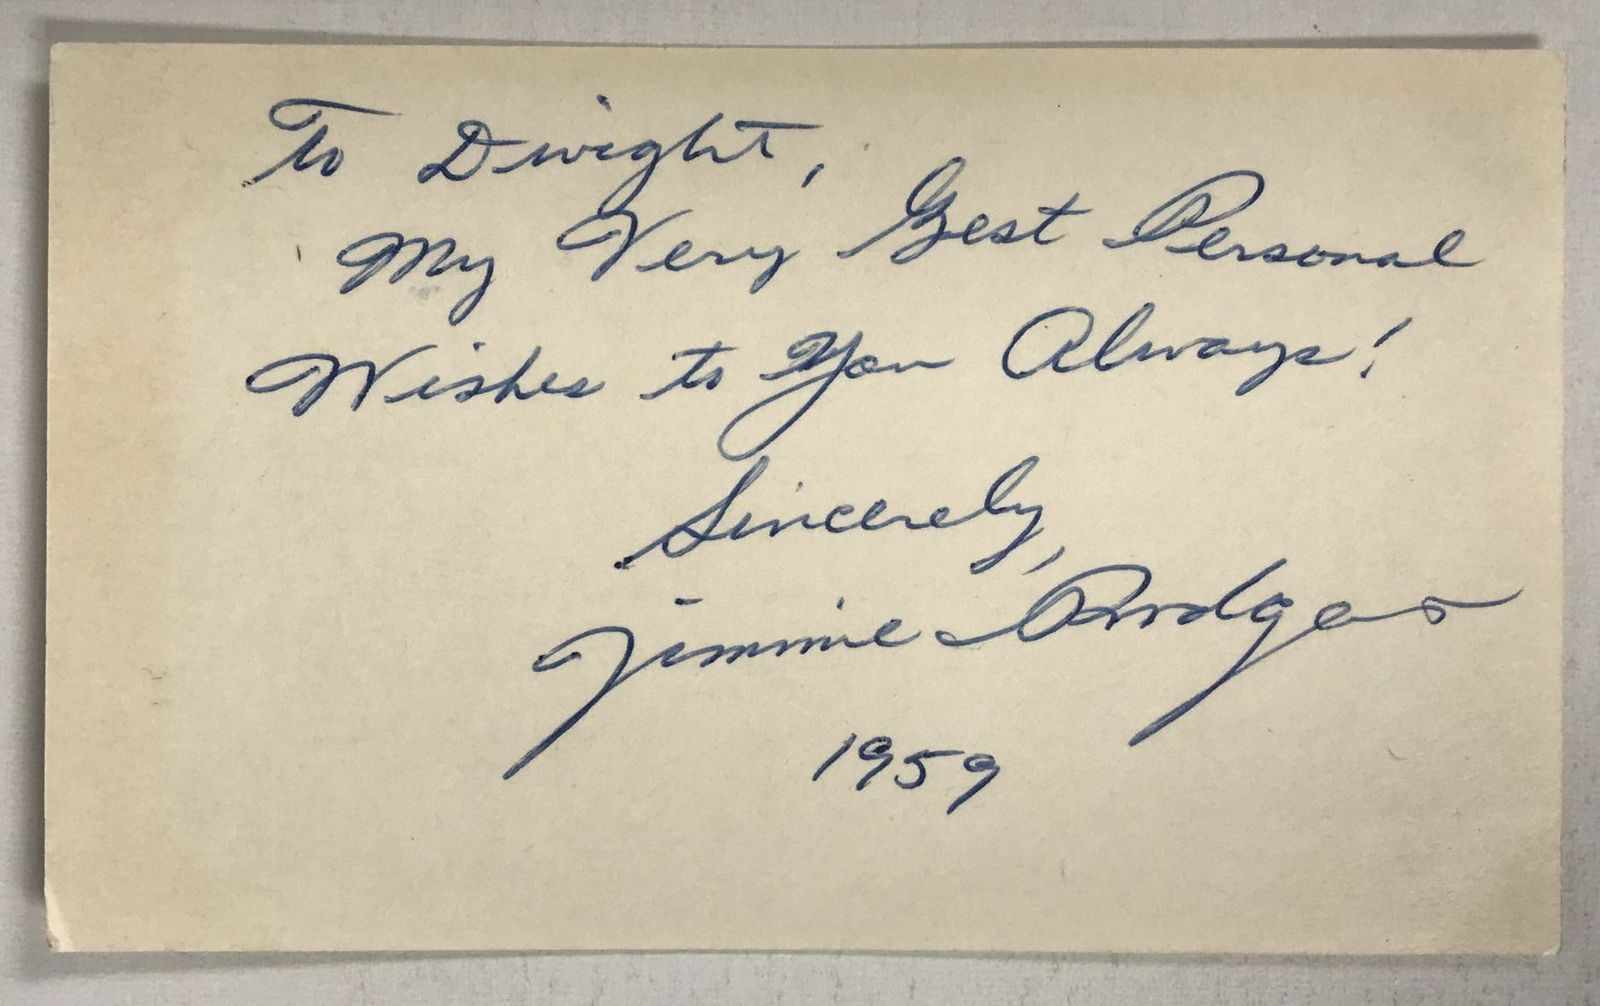 To Dwight,
My Very Best Personal
Wishes to You Always!
Sincerely,
Jimmie Rodgers
1959